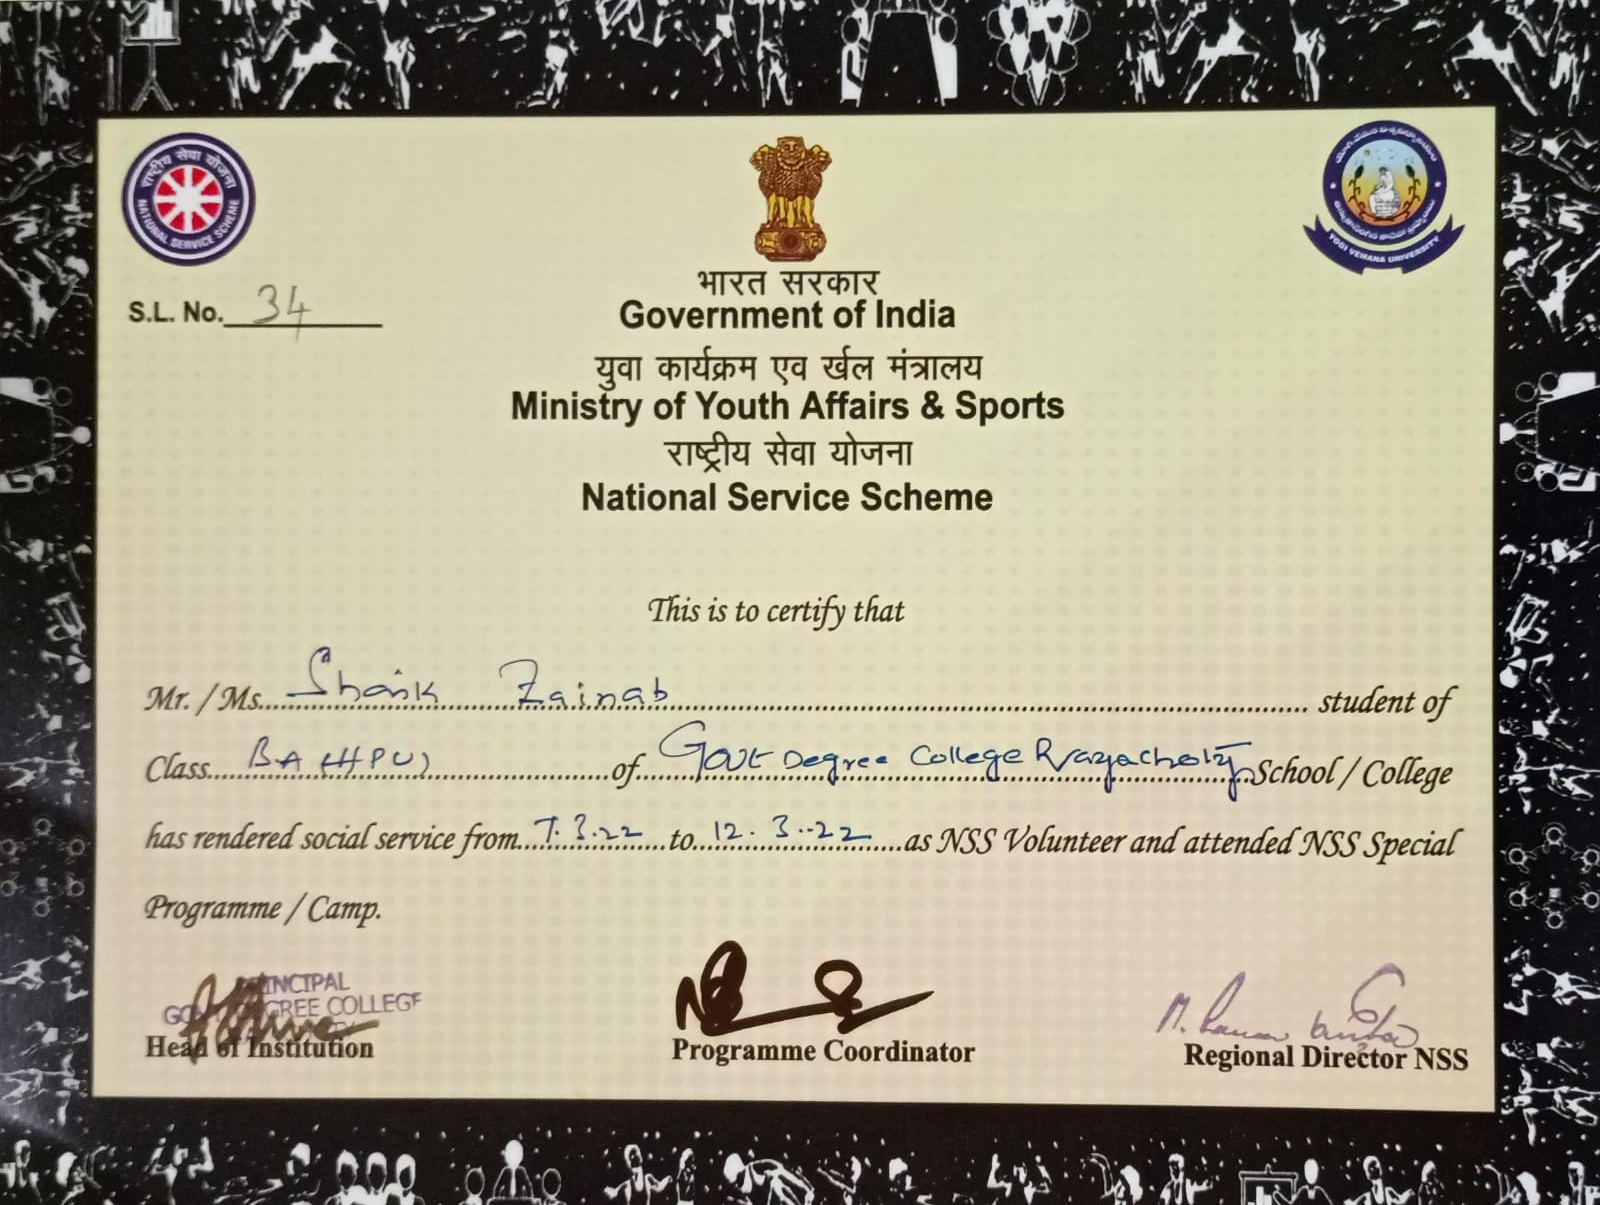 राष्ट्रीय सेवा योजना
NATIONAL SERVICE SCHEME
YOGI VEMANA UNIVERSITY
S.L. No. 34
भारत सरकार
Government of India
युवा कार्यक्रम एव र्खल मंत्रालय
Ministry of Youth Affairs & Sports
राष्ट्रीय सेवा योजना
National Service Scheme
This is to certify that
Mr. / Ms. Shaik Zainab student of
Class BA (HPU) of Govt Degree College Rayachoty School / College
has rendered social service from 7.3.22 to 12.3.22 as NSS Volunteer and attended NSS Special
Programme / Camp.
PRINCIPAL
DEGREE COLLEGE
Head of Institution
Programme Coordinator
Regional Director NSS